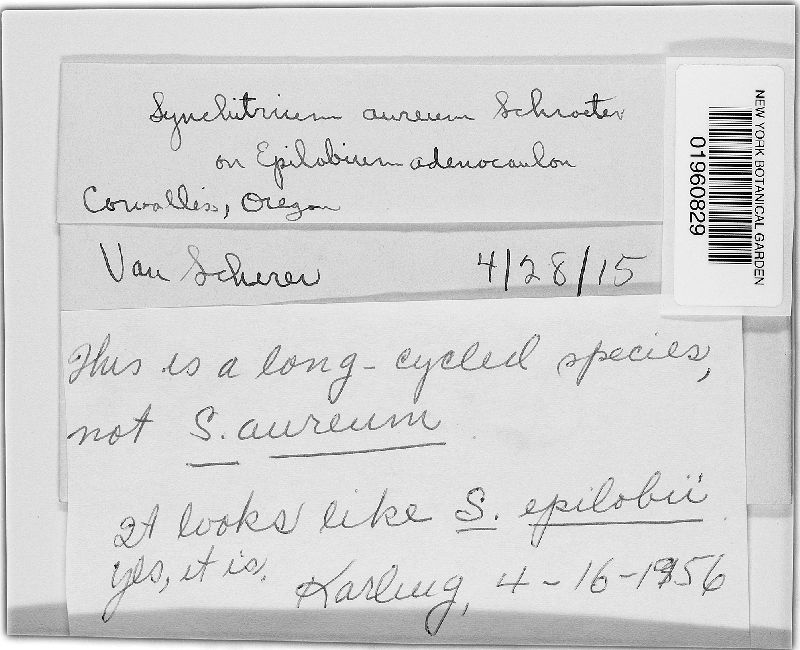 Synchitrium aureum Schroeter
on Epilobium adenocaulon
Corvallis, Oregon
Van Scherer 4/28/15
This is a long-cycled species,
not S. aureum
It looks like S. epilobii
yes, it is.
Karling, 4-16-1956
NEW YORK BOTANICAL GARDEN
01960829